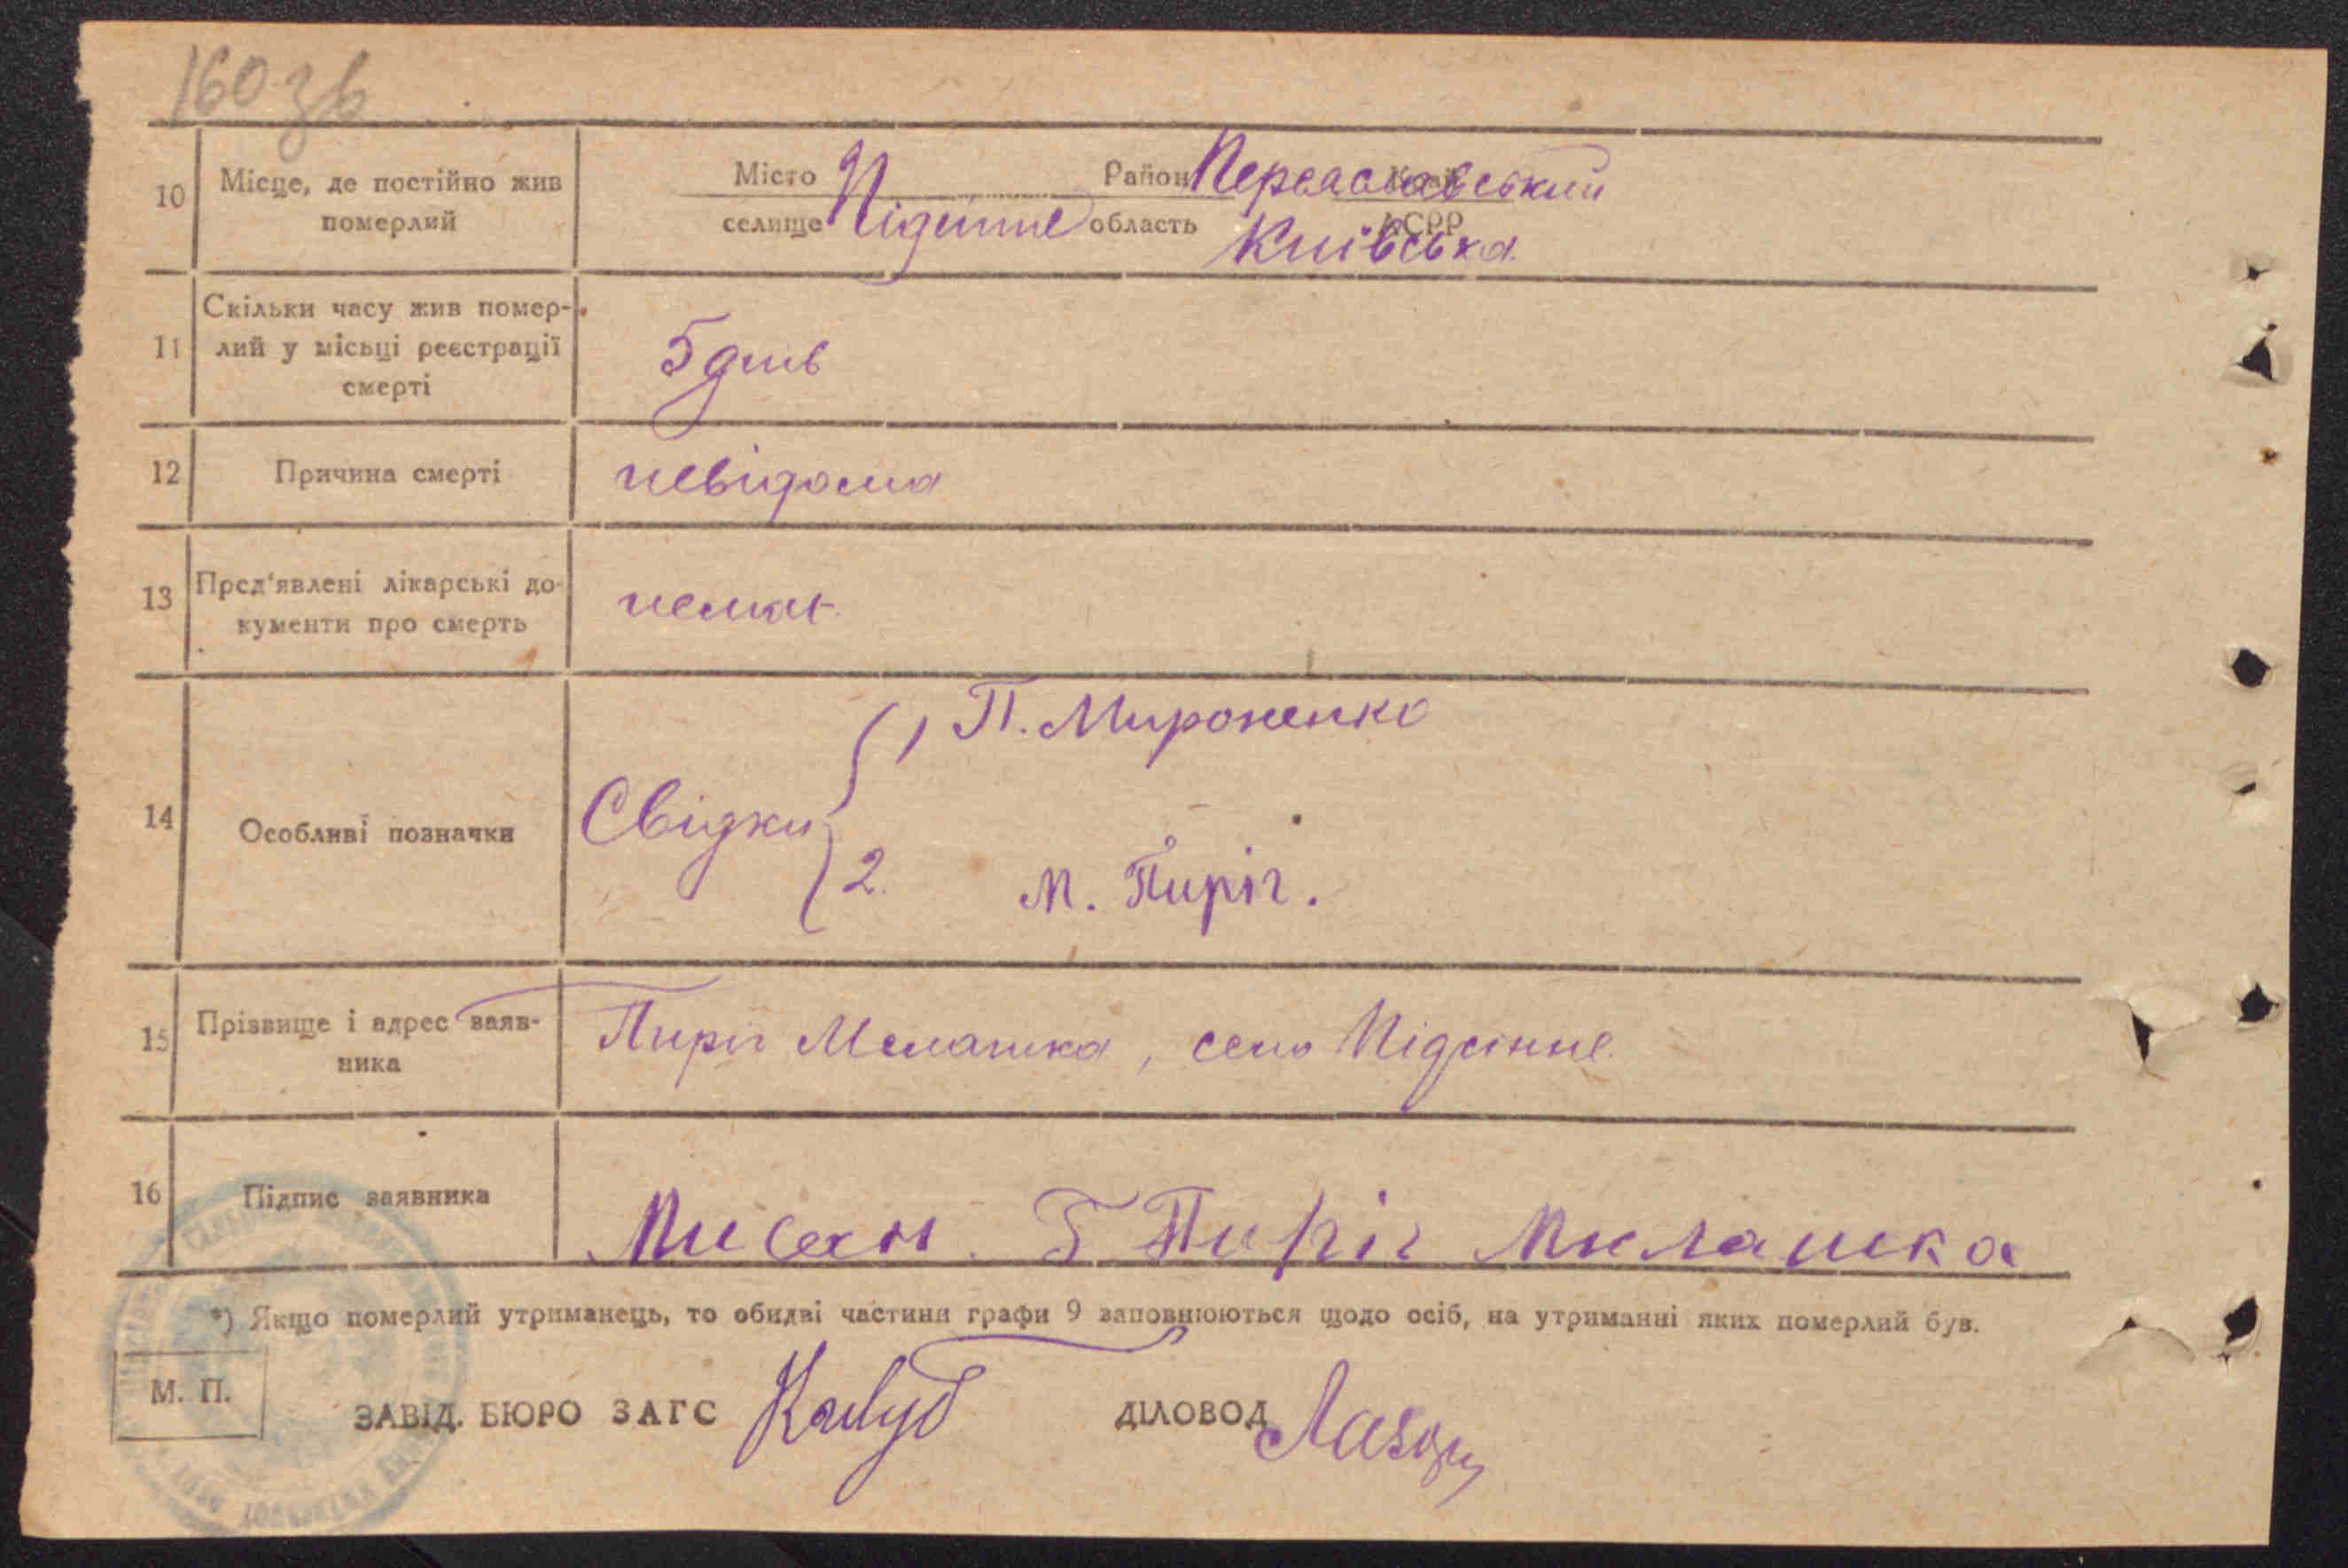 160 зв
10 Місце, де постійно жив померлий
Місто Район Переяславський
селище Підсінне область Київська АСРР
11 Скільки часу жив помер-
лий у місьці реєстрації
смерті
5 днів
12 Причина смерті невідома
13 Пред'явлені лікарські до-
кументи про смерть
немає
14 Особливі позначки
Свідки
1 П. Мироненко
2. М. Пиріг.
15 Прізвище і адрес заяв-
ника
Пиріг Мелашка, село Підсінне
16 Підпис заявника
Пиріг Милашка
*) Якщо померлий утриманець, то обидві частини графи 9 заповнюються щодо осіб, на утриманні яких померлий був.
М. П.
ЗАВІД. БЮРО ЗАГС ДІЛОВОД